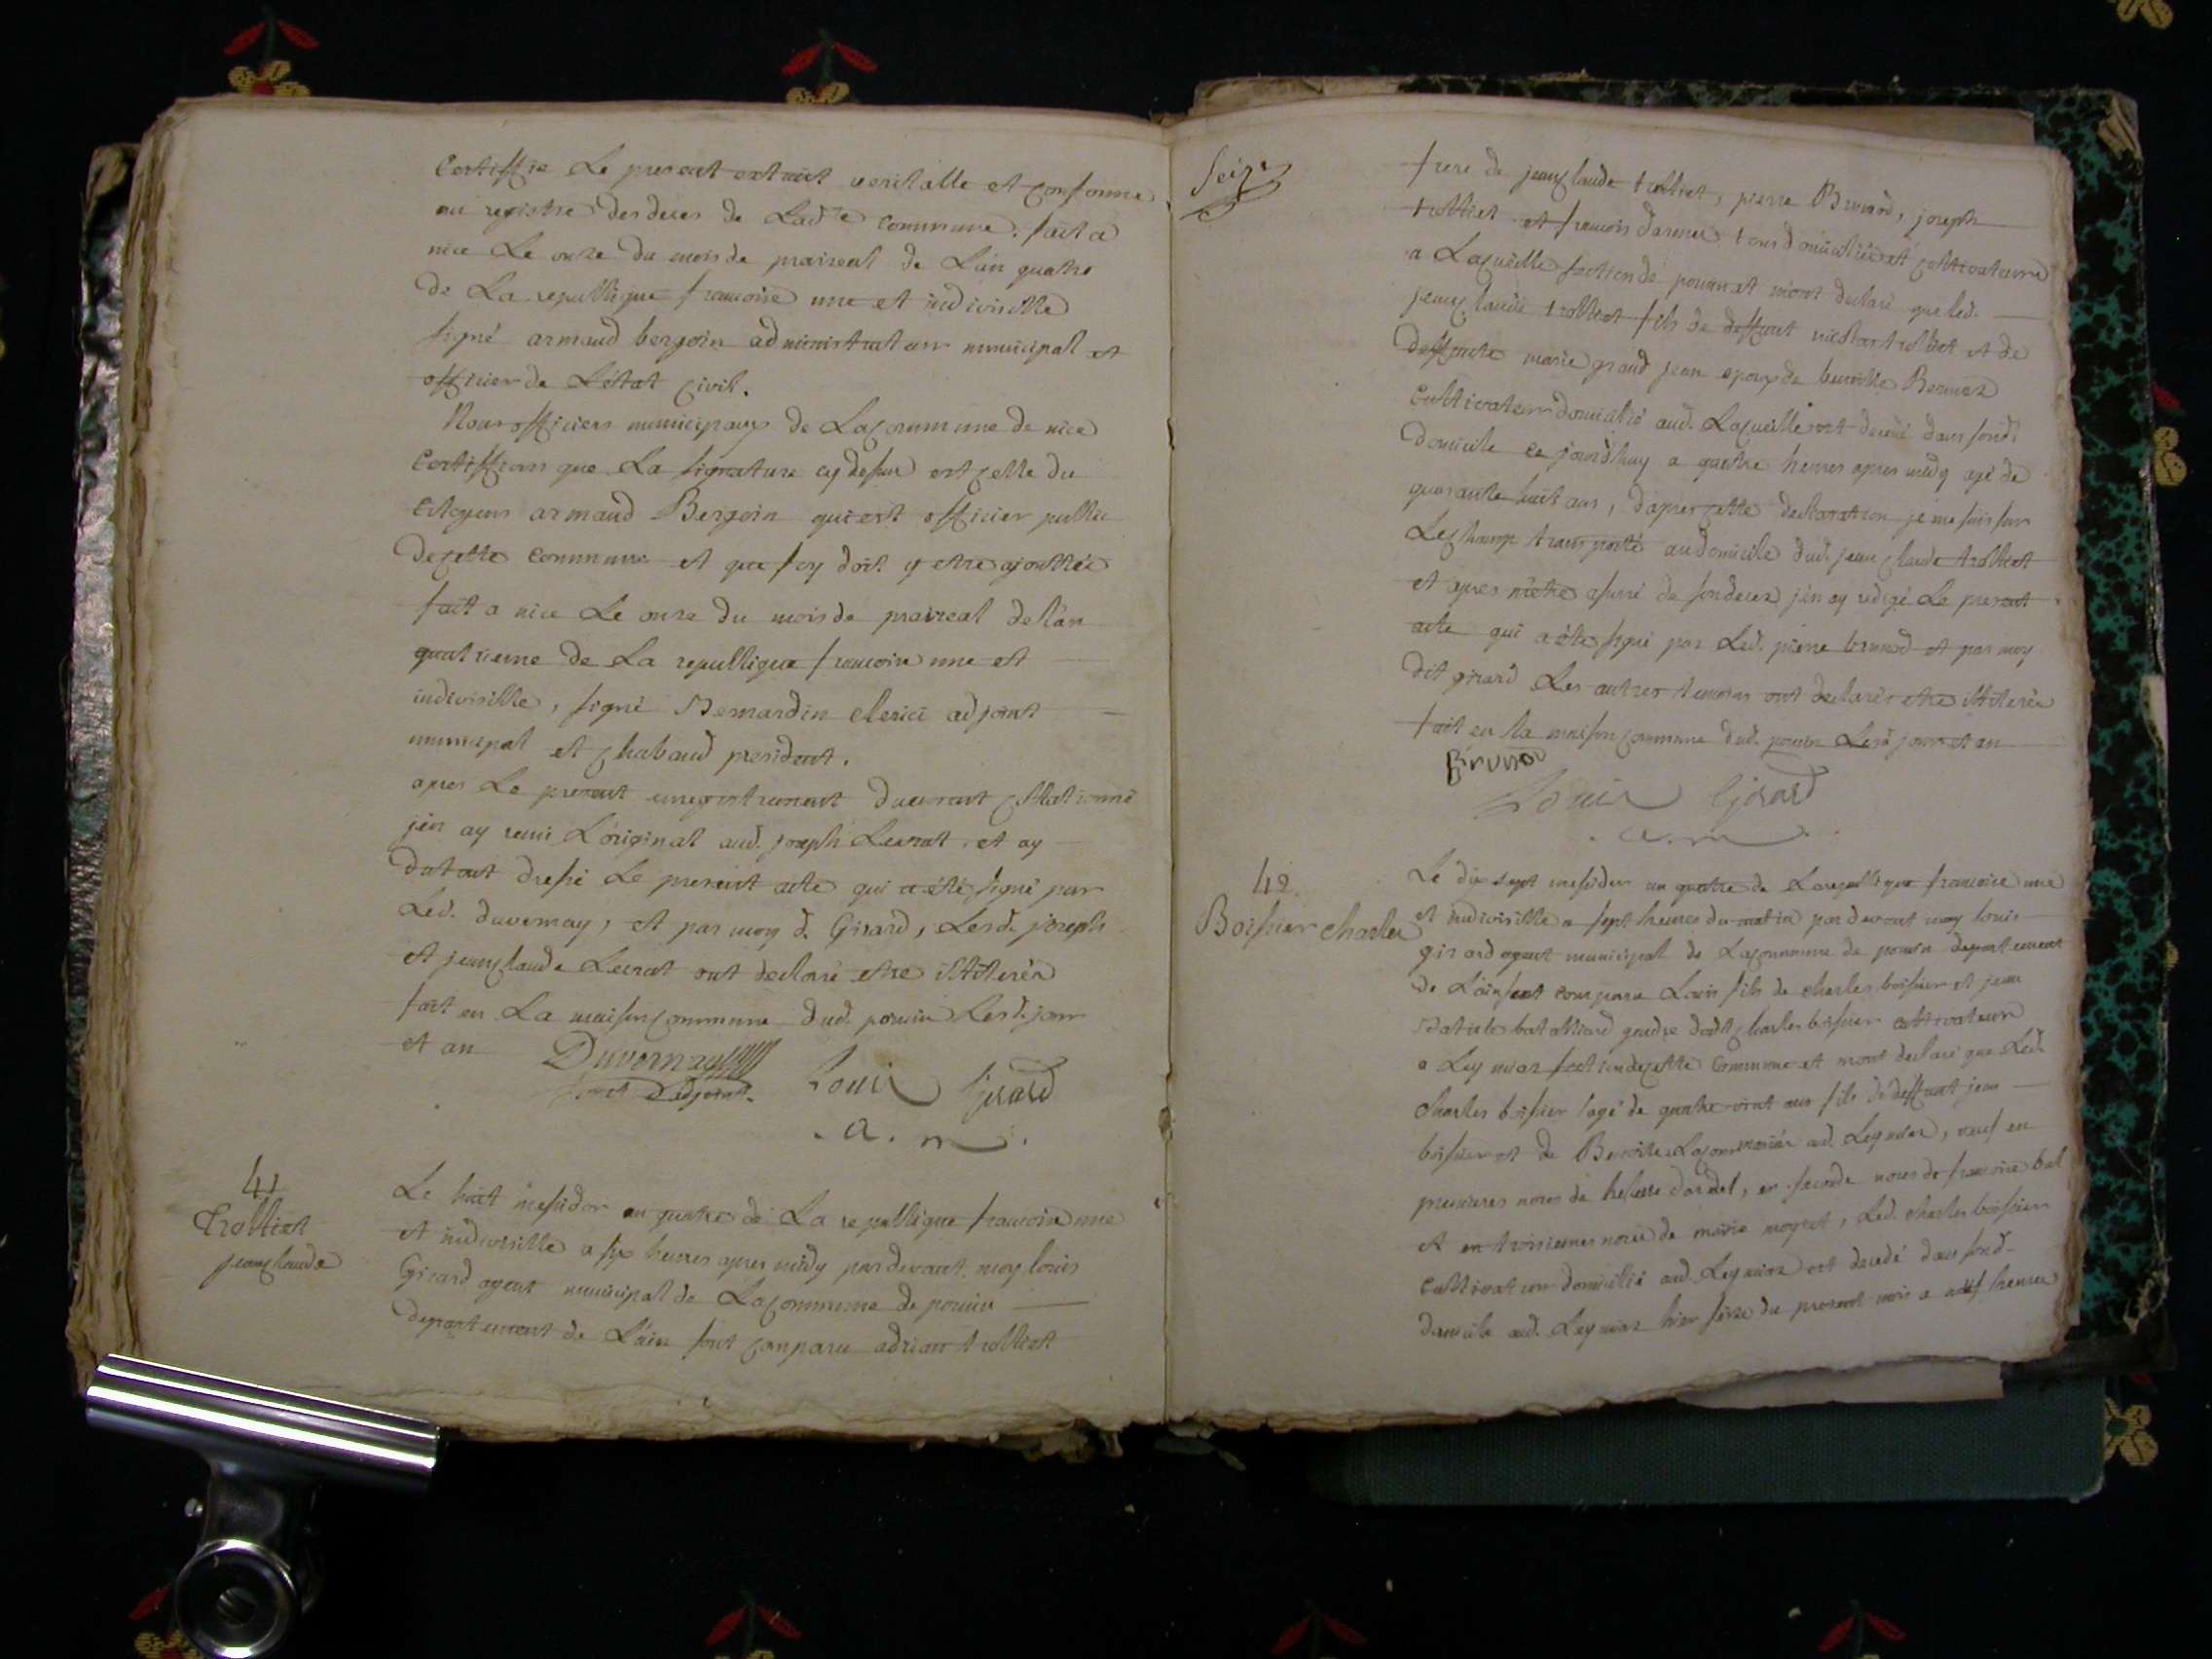 Certiffie Le present extrait veritable et conforme
au registre des deces de Ladte commune. fait a
nice Le onze du mois de praireal de L'an quatre
de La republique francoise une et indivisible
signé armand bergoin administrateur municipal et
officier de L'état civil.
Nous officiers municipaux de La commune de nice
Certiffions que La signature cy dessus est celle du
Citoyens armand Bergoin qui est officier public
de cette commune et que foy doit y etre ajouttée
fait a nice Le onze du mois de praireal de l'an
quatrieme de La republique francoise une et
indivisible, signé Bernardin clerici adjoint
municipal et chabaud president.
apres Le present enregistrement collationné
j'en ay remi L'original aud. joseph Levrat, et ay
du tout dressé Le present acte qui a été signé par
Led. duvernay, et par moy d. Girard, Lesd. joseph
et jean claude Levrat ont declaré etre illiterés
fait en La maison commune dud. poncin Lesd. jour
et an
Duvernay
adjoint.
Louis Girard
. a. m .
41
Trolliet
jean claude
Le huit messidor an quatre de La republique francoise une
et indivisible a six heures apres midy pardevant moy louis
Girard agent municipal de La commune de poncin
departement de L'ain sont comparu adrian trolliet
Seize
frere de jean claude trolliet, pierre Brunod, joseph
trolliet et francois tous domiciliés et cultivateurs
a Lacueille section de poncin et m'ont declaré que led.
jean claude trolliet fils de deffunt nicolas trolliet et de
deffunte marie grand jean epoux de benoitte
Cultivateur domicilié aud. Lacueille est decedé dans sond.
domicile ce jourd'huy a quattre heures apres midy agé de
quarante huit ans, d'apres cette declaration je me suis sur
Le champ transporté au domicile dud. jean claude trolliet
et apres m'etre assuré de son deces j'en ay redigé Le present
acte qui a été signé par Led. pierre brunod et par moy
dit girard Les autres temoins ont declarés etre illiterés
fait en la maison commune dud. poncin Lesd. jour et an
Brunod
Louis Girard
. a. m .
42
Boissier charles
Le dix sept messidor an quatre de La republique francoise une
et indivisible a sept heures du matin par devant moy louis
girard agent municipal de La commune de poncin departement
de L'ain sont comparu Louis fils de charles boissier et jean
batiste gendre dudt charles boissier cultivateurs
a Leymiaz section de cette commune et m'ont declaré que Led.
charles boissier agé de quatre vint ans fils de deffunt jean
boissier et de Benoite aud. Leymiaz, veuf en
premieres noces de helaine, en seconde noces de francoise bal
et en troisiemes noces de marie moyret, Led. charles boissier
cultivateur domicilié aud. Leymiaz est decedé dans sond.
domicile aud. Leymiaz hier seize du present mois a neuf heures